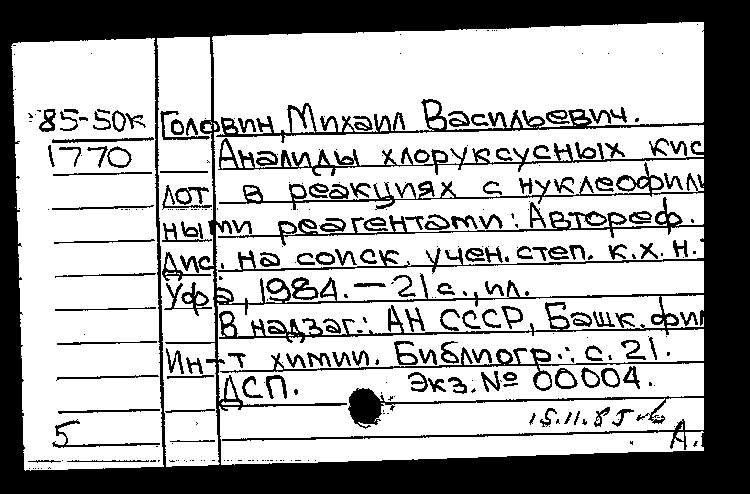 85-50к Головин, Михаил Васильевич.
1770 Анилиды хлоруксусных кис
лот в реакциях с нуклеофиль
ными реагентами: Автореф.
дис. на соиск. учен. степ. к.х.н.
Уфа, 1984. — 21 с., ил.
В надзаг.: АН СССР, Башк. фи
Ин-т химии. Библиогр.: с. 21.
ДСП. Экз. № 00004.
15.11.85
5 А.